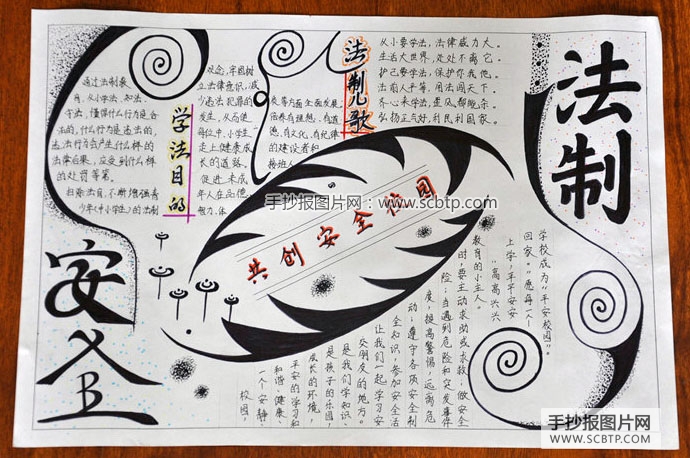 法制
安全
学法目的
通过法制教
育,从小学法、知法、
守法,懂得什么行为是合
法的,什么行为是违法的,
违法行为会产生什么样的
法律后果,应受到什么样
的处罚等等。
教育,不断增强青
少年(中小学生)的法制
观念,牢固树
立法律意识,减
少违法犯罪的
发生,从而使
每位中、小学生
走上健康成
长的道路。
促进未成
年人在品德、
智力、体
质等方面全面发展,
培养有理想、有道
德、有文化、有纪律
的建设者和
接班人
法制儿歌
从小要学法,法律威力大。
生活大世界,处处不离它。
护己要学法,保护你我他。
法前人平等,用法闯天下。
齐心来学法,歪风都
弘扬正气好,利民利国家。
手抄报图片网 www.scbtp.com
共创安全校园
校园,
一个安静
和谐、健康、
平安的学习和
成长的环境,
是孩子的乐园,
是我们学知识、
交朋友的地方。
让我们一起学习安
全知识,参加安全活
动,遵守各项安全制
度,提高警惕,远离危
险;当遇到危险和突发事件
时,要主动求助或求救,做安全
教育的小主人。
"高高兴兴
上学,平平安安
回家。"愿每一个
学校成为"平安校园"。
手抄报图片网
WWW.SCBTP.COM